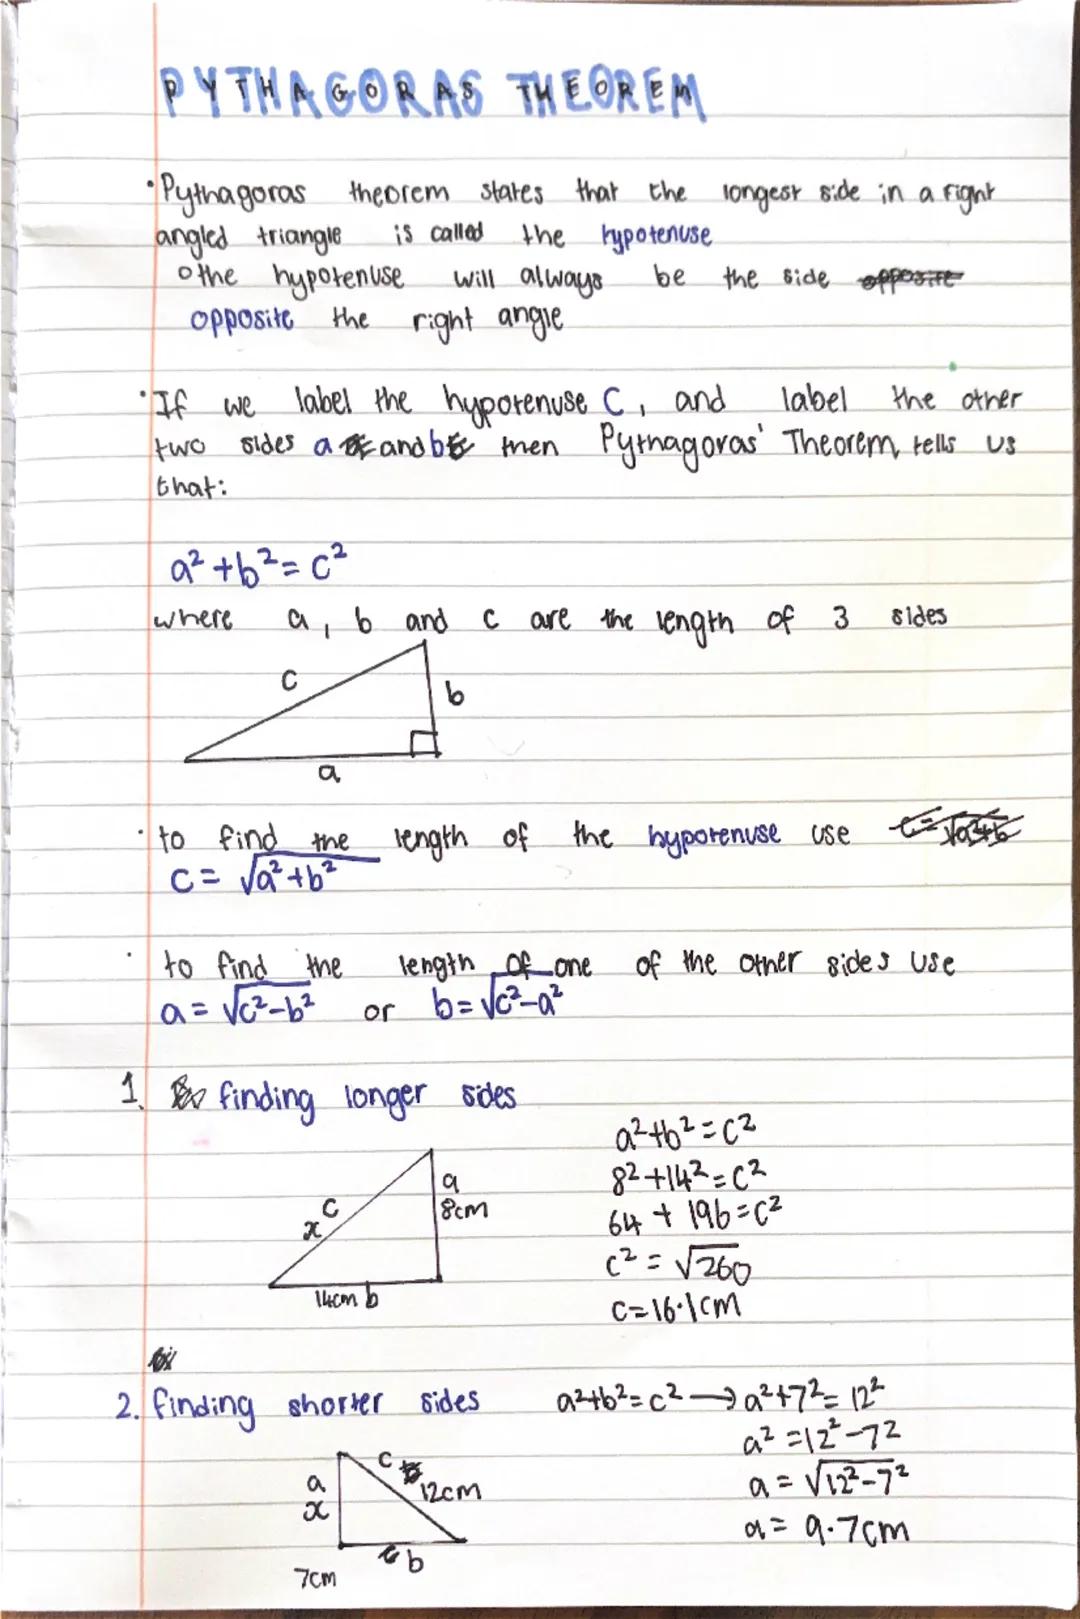 PYTHAGORAS THEOREM
• Pythagoras theorem states that the longest side in a right
angled triangle is called the hypotenuse
o the hypotenuse will always be the side opposite
opposite the right angle
• If we label the hypotenuse C, and label the other
two sides a and b then Pythagoras' Theorem tells us
that:
a² + b² = c²
where a, b and c are the length of 3 sides
c
b
a
• to find the length of the hypotenuse use
c = √a²+b²
• to find the length of one of the other sides use
a = √c²-b² or b = √c²-a²
1. finding longer sides
a²+b²=c²
8²+14²=c²
64 + 196=c²
c² = √260
c=16.1cm
a
8cm
c
x
14cm b
2. finding shorter sides a²+b²=c² → a²+7²=12²
a²=12²-7²
a=√12²-7²
a= 9.7cm
c
12cm
a
x
b
7cm